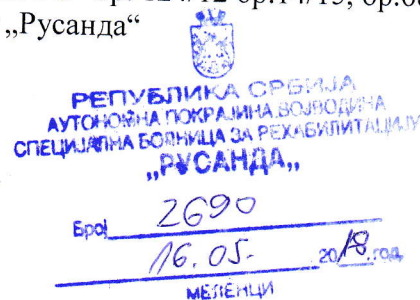 бр.14/15, бр.
„Русанда“
РЕПУБЛИКА СРБИЈА
АУТОНОМНА ПОКРАЈИНА ВОЈВОДИНА
СПЕЦИЈАЛНА БОЛНИЦА ЗА РЕХАБИЛИТАЦИЈУ
„РУСАНДА„
Број 2690
16.05. 2018.год.
МЕЛЕНЦИ